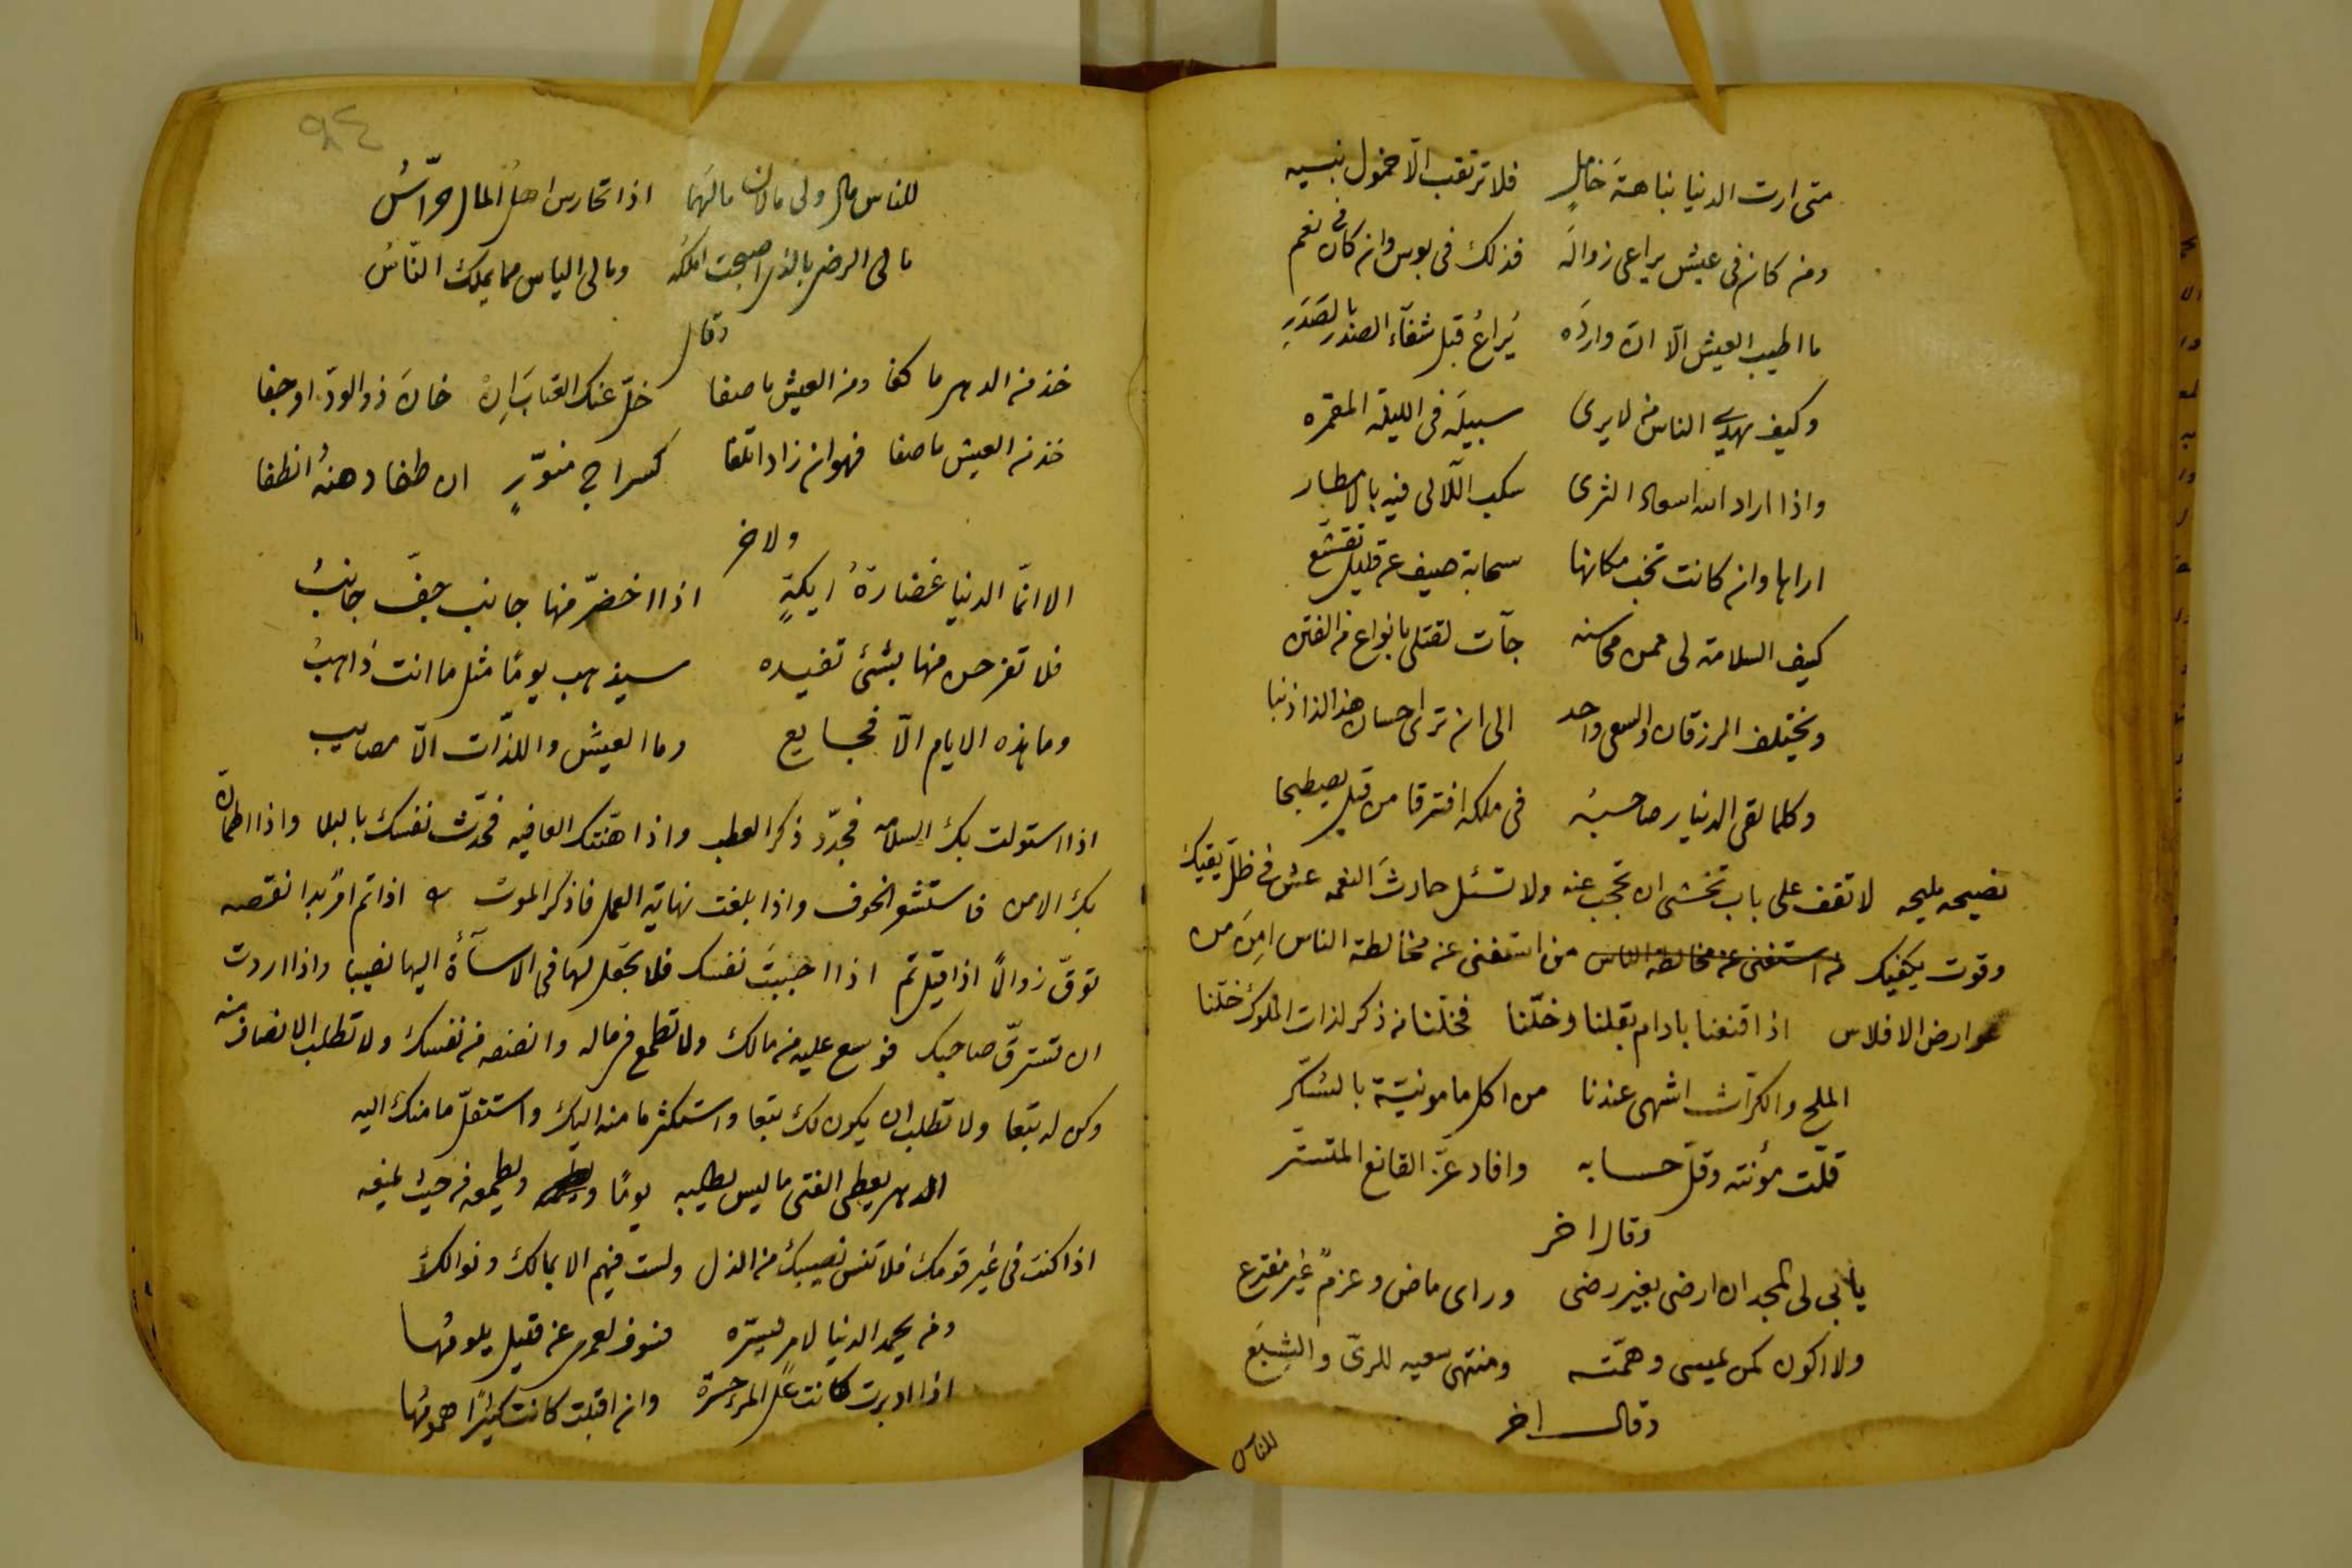 متى ارت الدنيا نباهة خامل فلا ترتقب الّا خمول نبيه
ومن كان فى عيش يراعى زواله فذلك فى بوس وان كان فى نعم
ما اطيب العيش الّا انّ وارده يُراعُ قبل شفآء الصدر بالصَدَرِ
وكيف يهدي الناس من لا يرى سبيله فى الليلة المقمره
واذا اراد الله اسعاد الثرى سكب اللآلى فيه بالامطار
اراها وان كانت تحب مكانها سحابة صيف عن قليل تقشّع
كيف السلامة لى ممن محاسنه جآت لقتلى بانواع من الفتن
ويختلف الرزقان والسعى واحد الى ان ترى احسان هذا لذا ذنبا
وكلما لقى الدينار صاحبه فى ملكه افترقا من قبل يصطحبا
نصيحه مليحه لا تقف على باب تخشى ان تحجب عنه ولا تسئل حادثَ النعمه عش فى ظلّ يقيك
وقوت يكفيك من استغنى عن مخالطة الناس من استغنى عن مخالطة الناس امِنَ من
عوارض الافلاس اذا قنعنا بادام بقلنا وخلّنا فخلّنا من ذكر لذات الملوك خلّنا
الملح والكرّاث اشهى عندنا من اكل مامونيّة بالسُكّر
قلّت مؤنته وقلّ حسابه وافاد عزّ القانع المتستّر
وقال اخر
يأبى لى المجد ان ارضى بغير رضى وراى ماض وعزم غير مفترع
ولا اكون كمن يمسى وهمّته ومنتهى سعيه للرىّ والشِبَع
وقال اخر
للناس
للناس مال ولى مالان مالهما اذا تحارس اهل المال حرّاسُ
مالى الرضى بالذى اصبحت املكه ومالى الياس مما يملك النّاسُ
وقال
خذ من الدهر ما كفا ومن العيش ما صفا خلّ عنك العتابَ اِنْ خانَ ذو الودّ او جفا
خذ من العيش ما صفا فهو ان زاد اتلفا كسراج منوّرٍ ان طفا دهنهُ انطفا
ولاخر
الا انّما الدنيا غضارةُ ايكةٍ اذا اخضرّ منها جانب جفّ جانبُ
فلا تفرحن منها بشئ تفيده سيذهب يومًا مثل ما انت ذاهبُ
وما هذه الايام الّا فجايع وما العيش واللذّات الّا مصايب
اذا استولت بك السلامه فجدّد ذكر العطب واذا هنّتك العافيه فحدّث نفسك بالبلا واذا اطمأنّ
بك الامن فاستشعر الخوف واذا بلغت نهاية العمل فاذكر الموت اذا تم امرٌ بدا نقصه
توقّ زوالًا اذا قيل تم اذا احببتَ نفسك فلا تجعل لها فى الاسآءة اليها نصيبا واذا اردت
ان تسترقّ صاحبك فوسع عليه من مالك ولا تطمع فى ماله وانصفه من نفسك ولا تطلب الانصاف منه
وكن له تبعا ولا تطلب ان يكون لك تبعا واستكثر ما منه اليك واستقلّ ما منك اليه
الدهر يعطى الفتى ما ليس يطلبه يومًا ويطمعه من حيث يمنعه
اذا كنت فى غير قومك فلا تنس نصيبك من الذل ولست فيهم الا بمالك ونوالك
ومن يحمد الدنيا لامر يسرّه فسوف لعمرى عن قليل يلومها
اذا ادبرت كانت على المرء حسرة وان اقبلت كانت كثيرًا همومُها